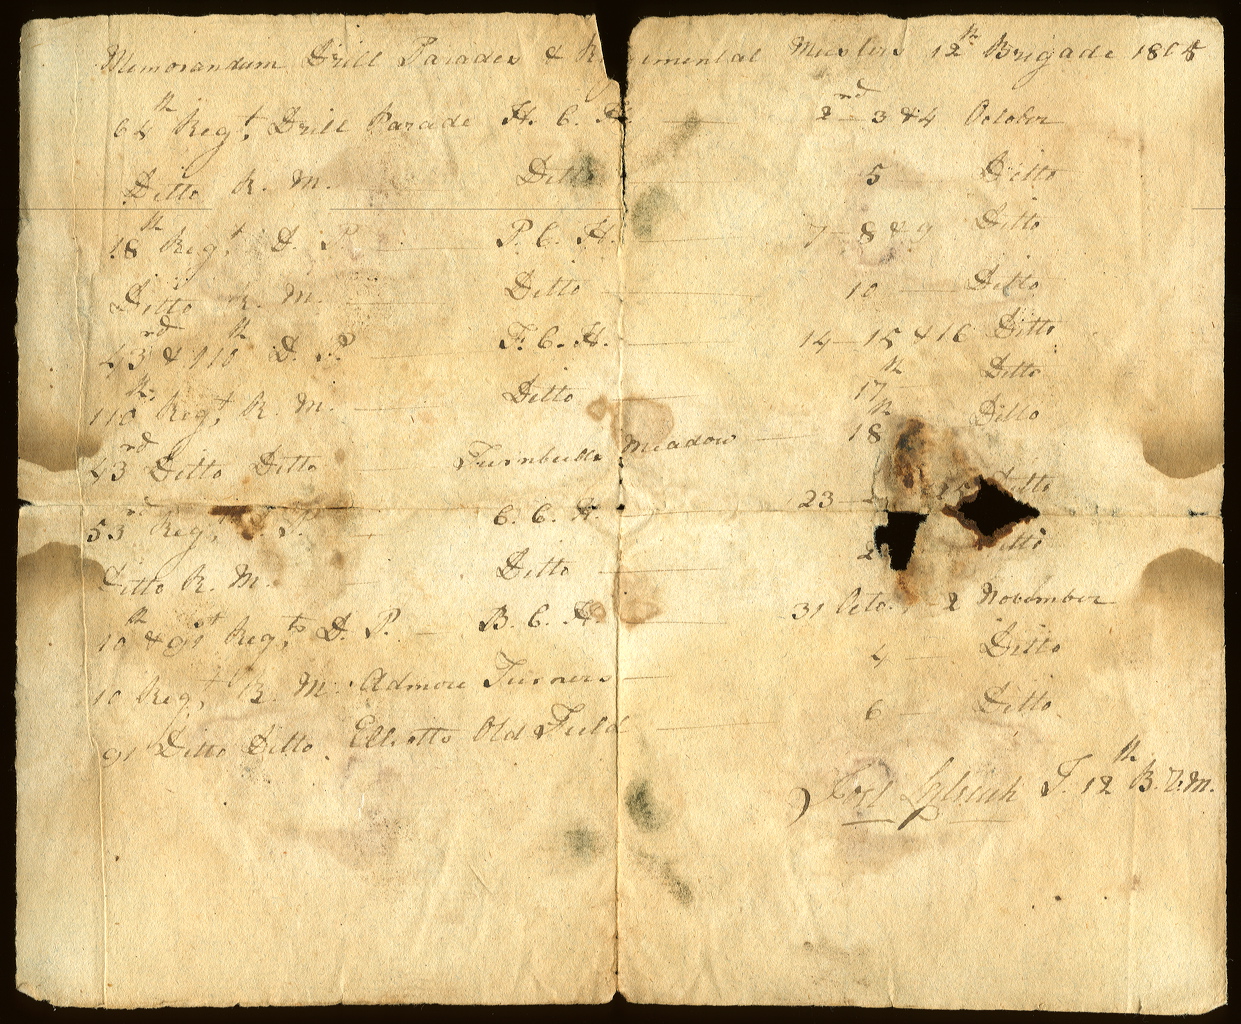 Memorandum Drill Parades & Regimental Musters 12th Brigade 1805
64th Regt, Drill Parade H. C. H. 2nd 3 & 4 October
Ditto R. M. Ditto 5 Ditto
18th Regt, D. P. P. C. H. 7 - 8 & 9 Ditto
Ditto R. M. Ditto 10 Ditto
43rd & 110th D. P. F. C. H. 14 - 15 & 16 Ditto
110th Regt, R. M. Ditto 17th Ditto
43rd Ditto Ditto Turnbulls Meadow 18th Ditto
53rd Regt, D. P. C. C. H. 23 - Ditto
Ditto R. M. Ditto Ditto
10th & 91st Regts, D. P. B. C. H. 31 Octo. 2 November
10 Regt, R. M. Turners 4 Ditto
91 Ditto Ditto. Elliotts Old Field 6 Ditto
12th B. V. M.